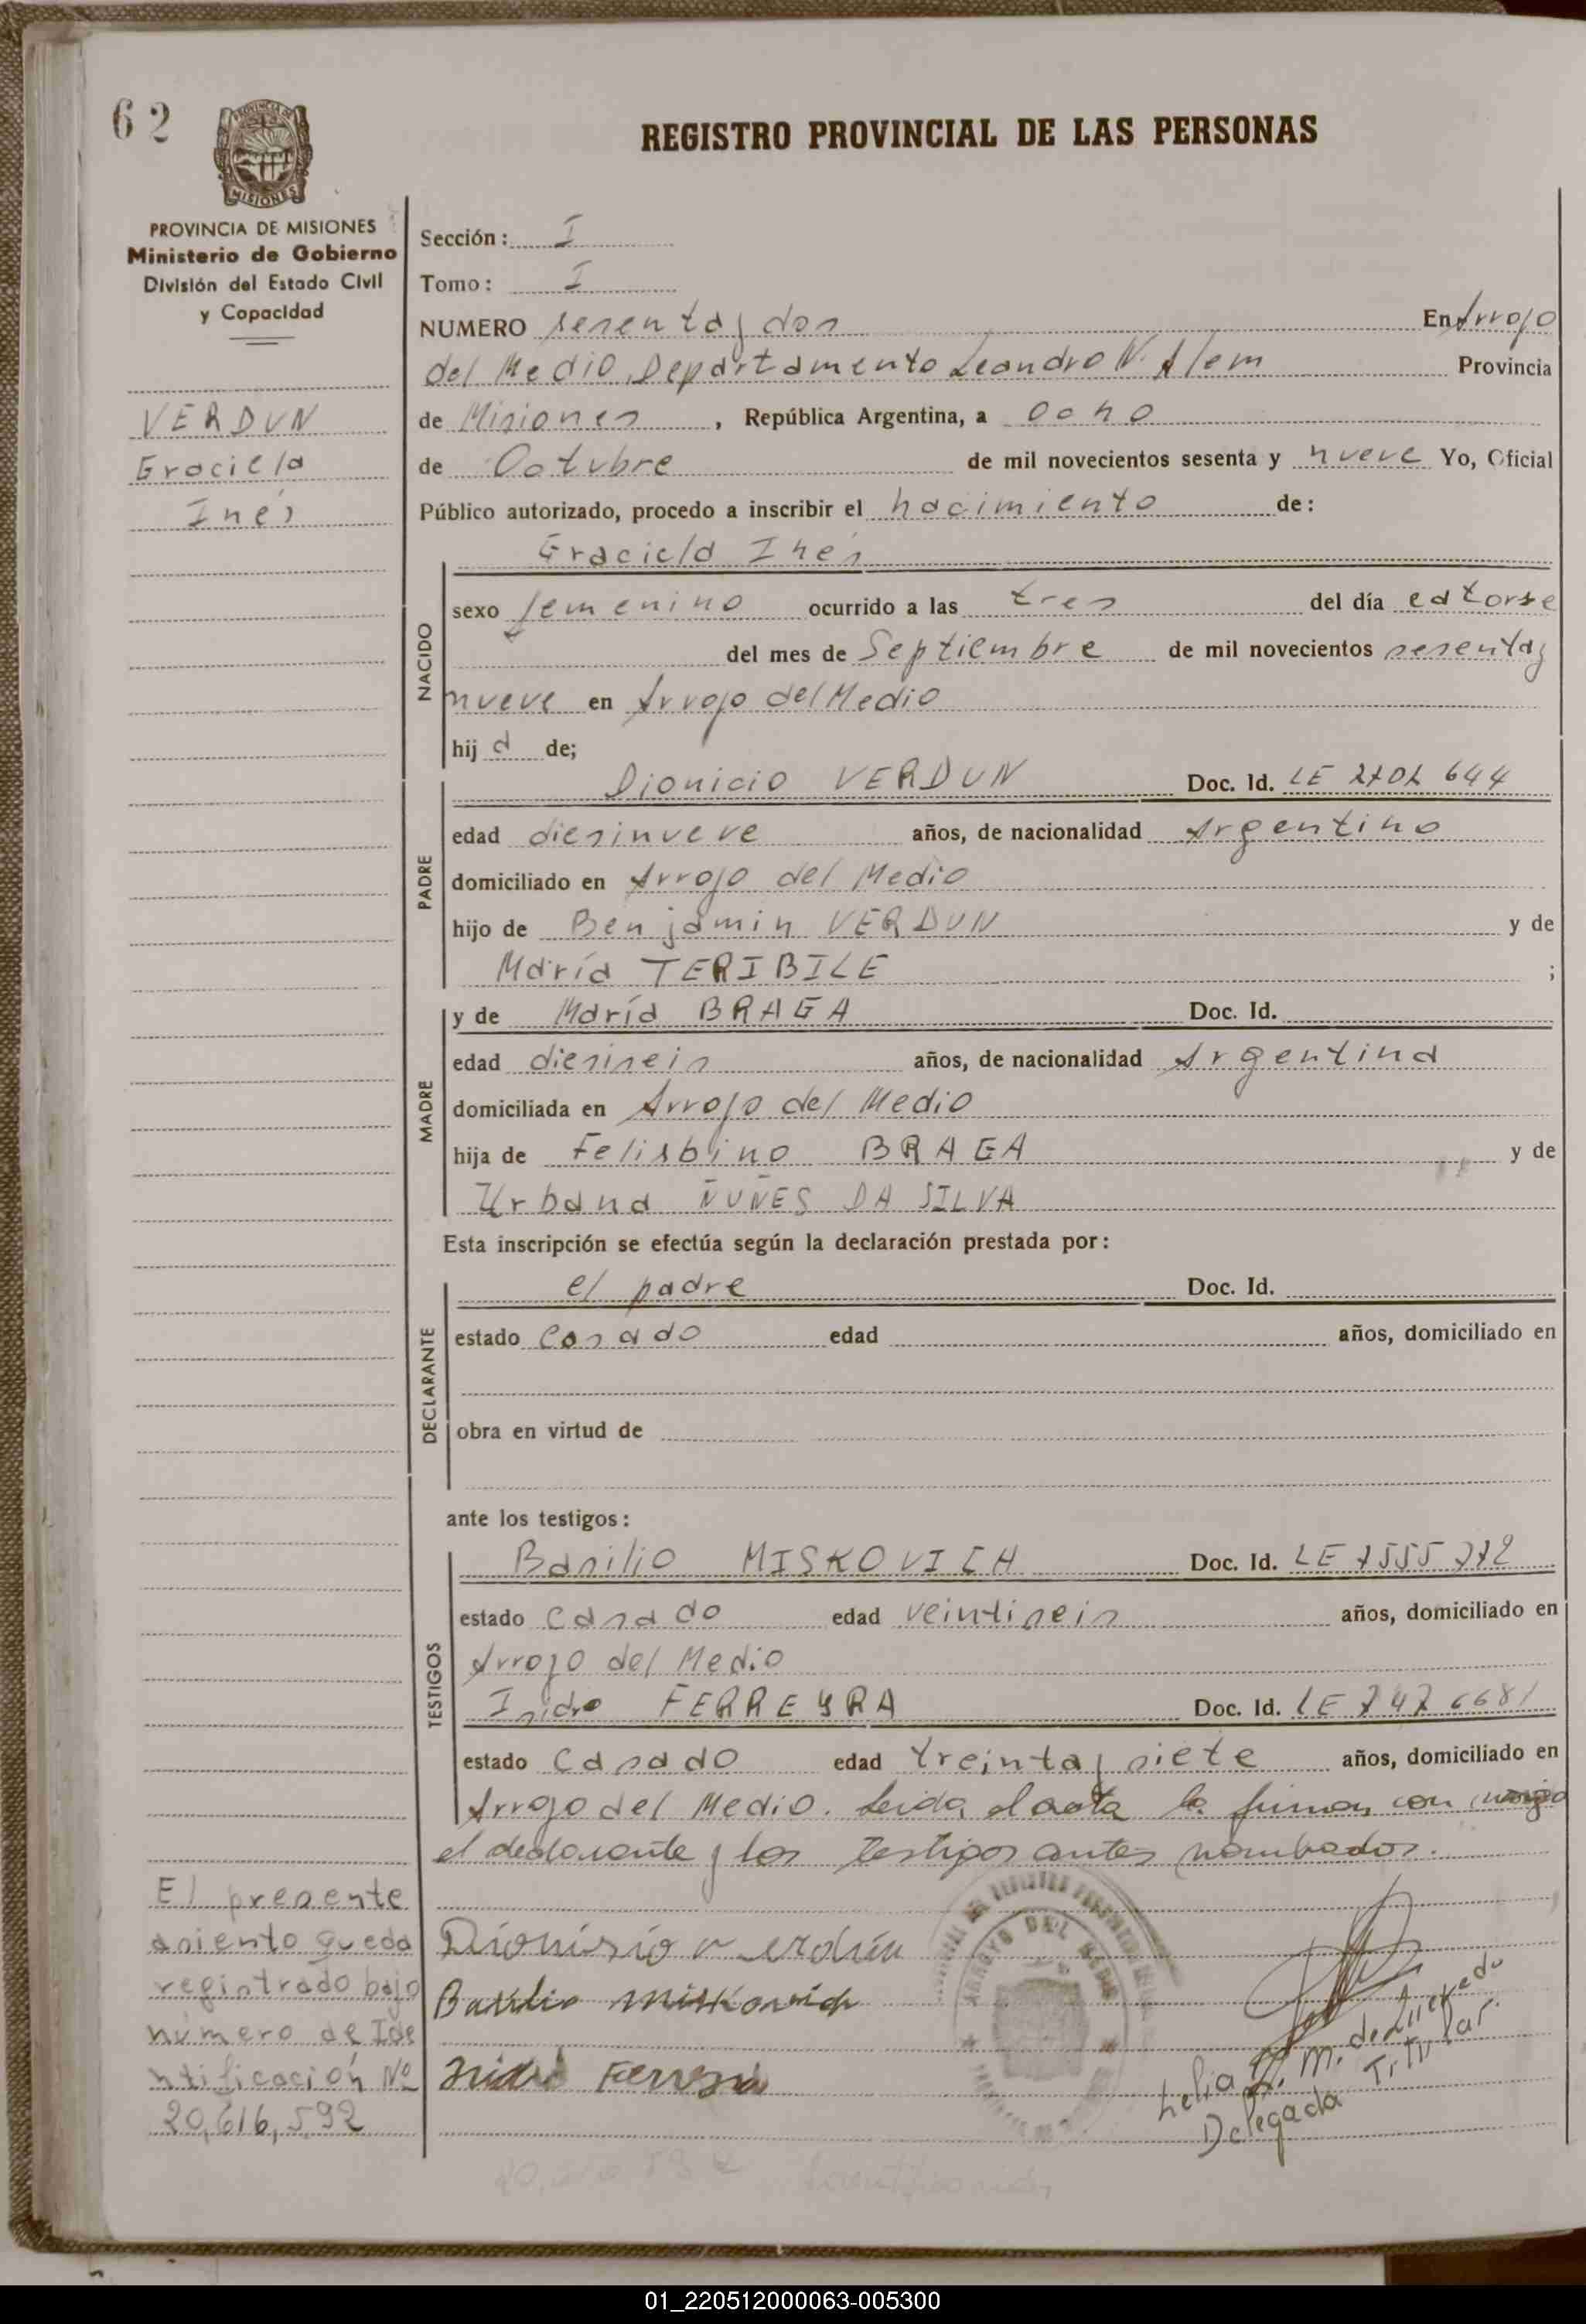 62
PROVINCIA DE MISIONES
Ministerio de Gobierno
División del Estado Civil
y Capacidad
VERDUN
Graciela
Inés
REGISTRO PROVINCIAL DE LAS PERSONAS
Sección: I
Tomo: I
NUMERO sesenta y dos En Arroyo
del Medio, Departamento Leandro N. Alem Provincia
de Misiones, República Argentina, a ocho
de Octubre de mil novecientos sesenta y nueve Yo, Oficial
Público autorizado, procedo a inscribir el nacimiento de:
Graciela Inés
NACIDO
sexo femenino ocurrido a las tres del día catorse
del mes de Septiembre de mil novecientos sesenta y
nueve en Arroyo del Medio
hij a de;
PADRE
Dionicio VERDUN Doc. Id. LE
edad diesinueve años, de nacionalidad Argentino
domiciliado en Arroyo del Medio
hijo de Benjamin VERDUN y de
María TERIBILE ;
MADRE
y de María BRAGA Doc. Id.
edad diesiseis años, de nacionalidad Argentina
domiciliada en Arroyo del Medio
hija de Felisbino BRAGA y de
Urbana ÑUÑES DA SILVA
Esta inscripción se efectúa según la declaración prestada por:
DECLARANTE
el padre Doc. Id.
estado Casado edad años, domiciliado en
obra en virtud de
ante los testigos:
TESTIGOS
Basilio MISKOVICH Doc. Id. LE
estado Casado edad veintiseis años, domiciliado en
Arroyo del Medio
Isidro FERREYRA Doc. Id. LE 7476681
estado Casado edad treinta y siete años, domiciliado en
Arroyo del Medio. Leida el acta la firman con migo
el declarante y los testigos antes nombrados.
El presente
asiento queda
registrado bajo
número de Ide
ntificación Nº
20,616,592
Dionisio verdún
Basilio Miskovich
Isidro Ferreyra
ARROYO DEL MEDIO
Delegada Titular
01_220512000063-005300